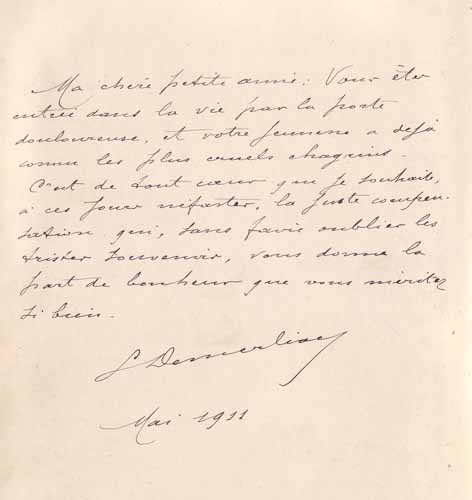 Ma chère petite amie: Vous êtes
entrée dans la vie par la porte
douloureuse, et votre jeunesse a déjà
connu les plus cruels chagrins.
C'est de tout cœur que je souhaite,
à ces jours néfastes, la juste compen-
sation qui, sans faire oublier les
tristes souvenirs, vous donne la
part de bonheur que vous méritez
si bien.
Mai 1911